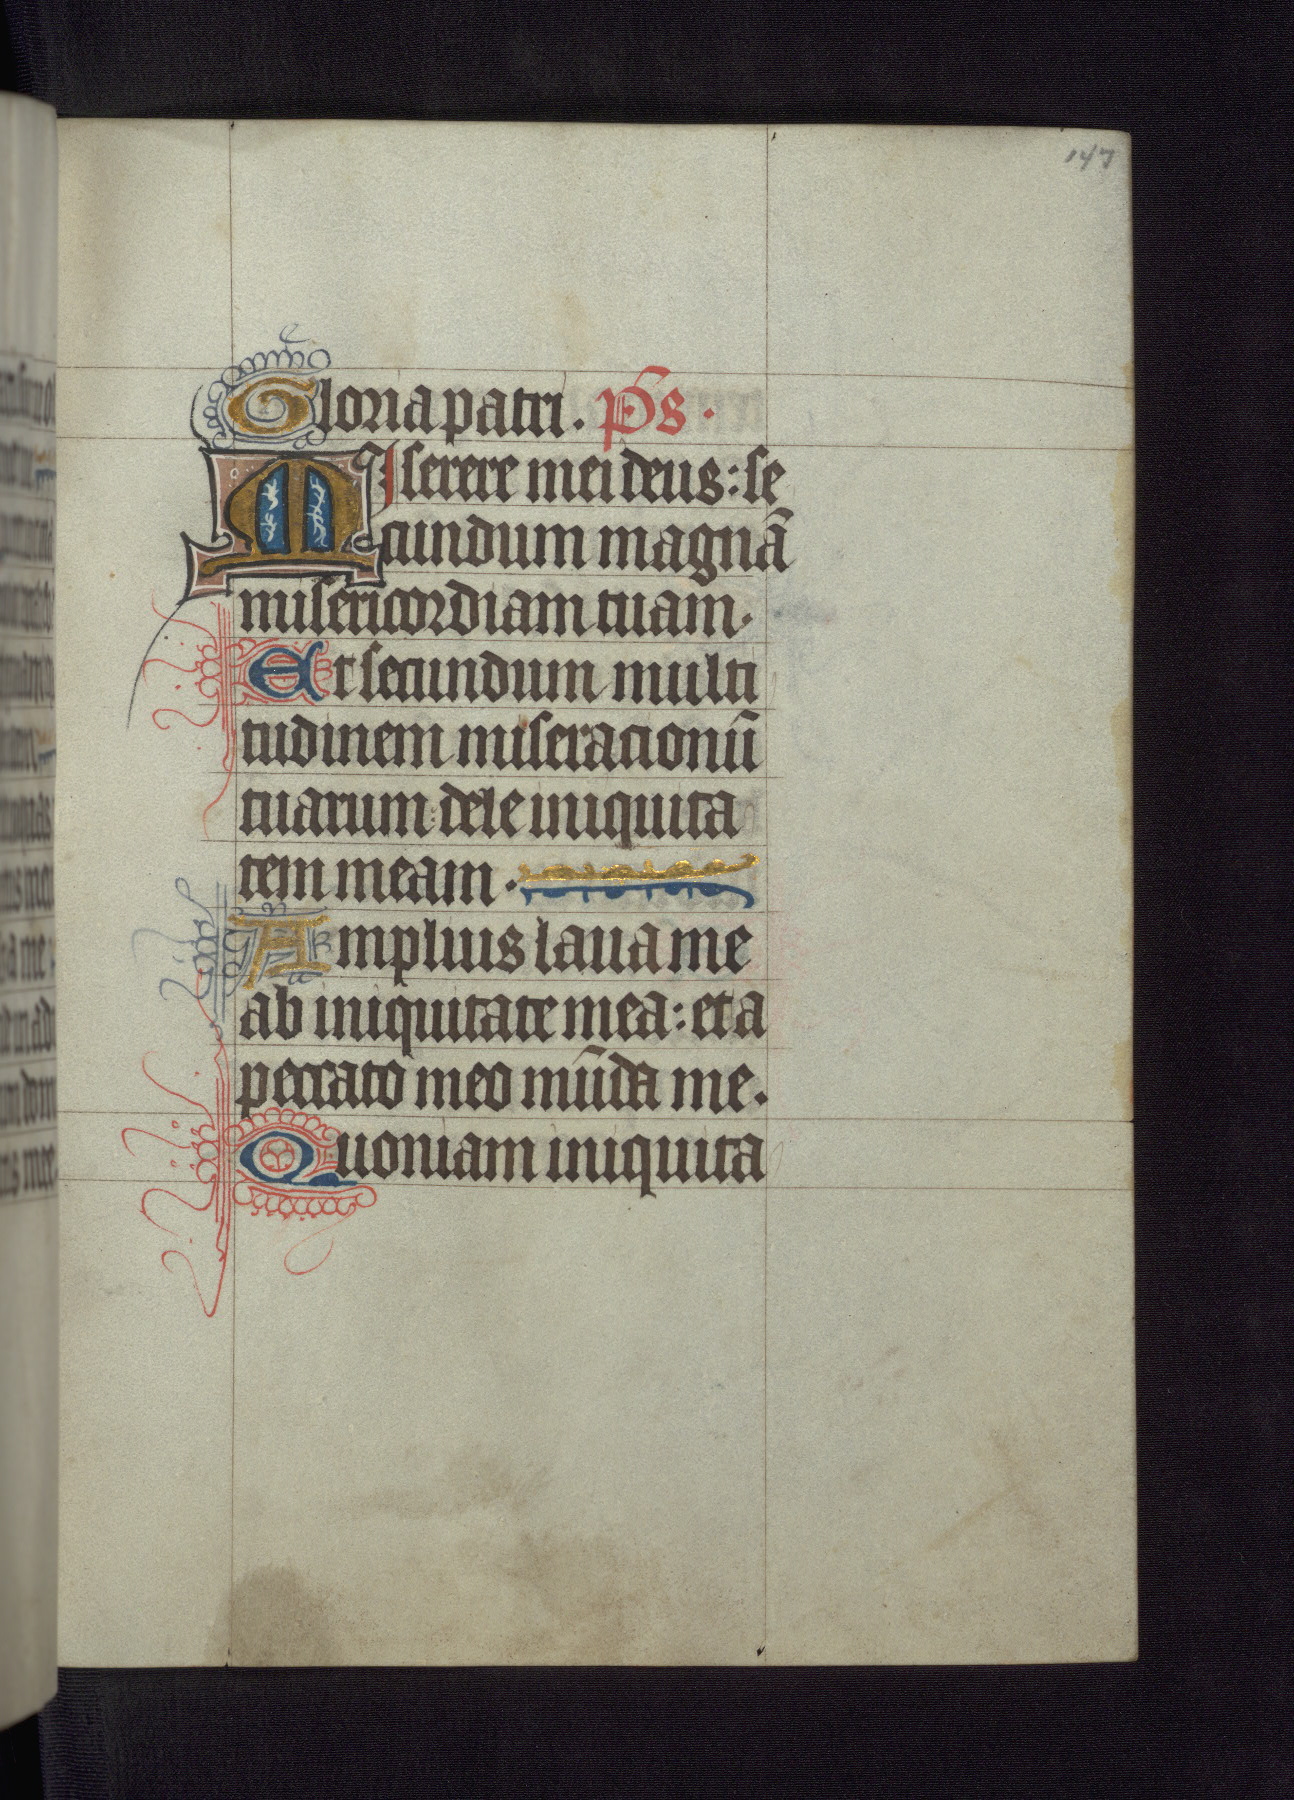 147
Gloria patri. p̄s.
MIserere mei deus: se
cundum magnā
misericordiam tuam.
Et secundum multi
tudinem miseracionū
tuarum: dele iniquita
tem meam.
Amplius laua me
ab iniquitate mea: et a
peccato meo mūda me.
Quoniam iniquita